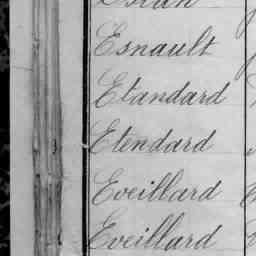 Esnault
Etandard
Etendard
Eveillard
Eveillard